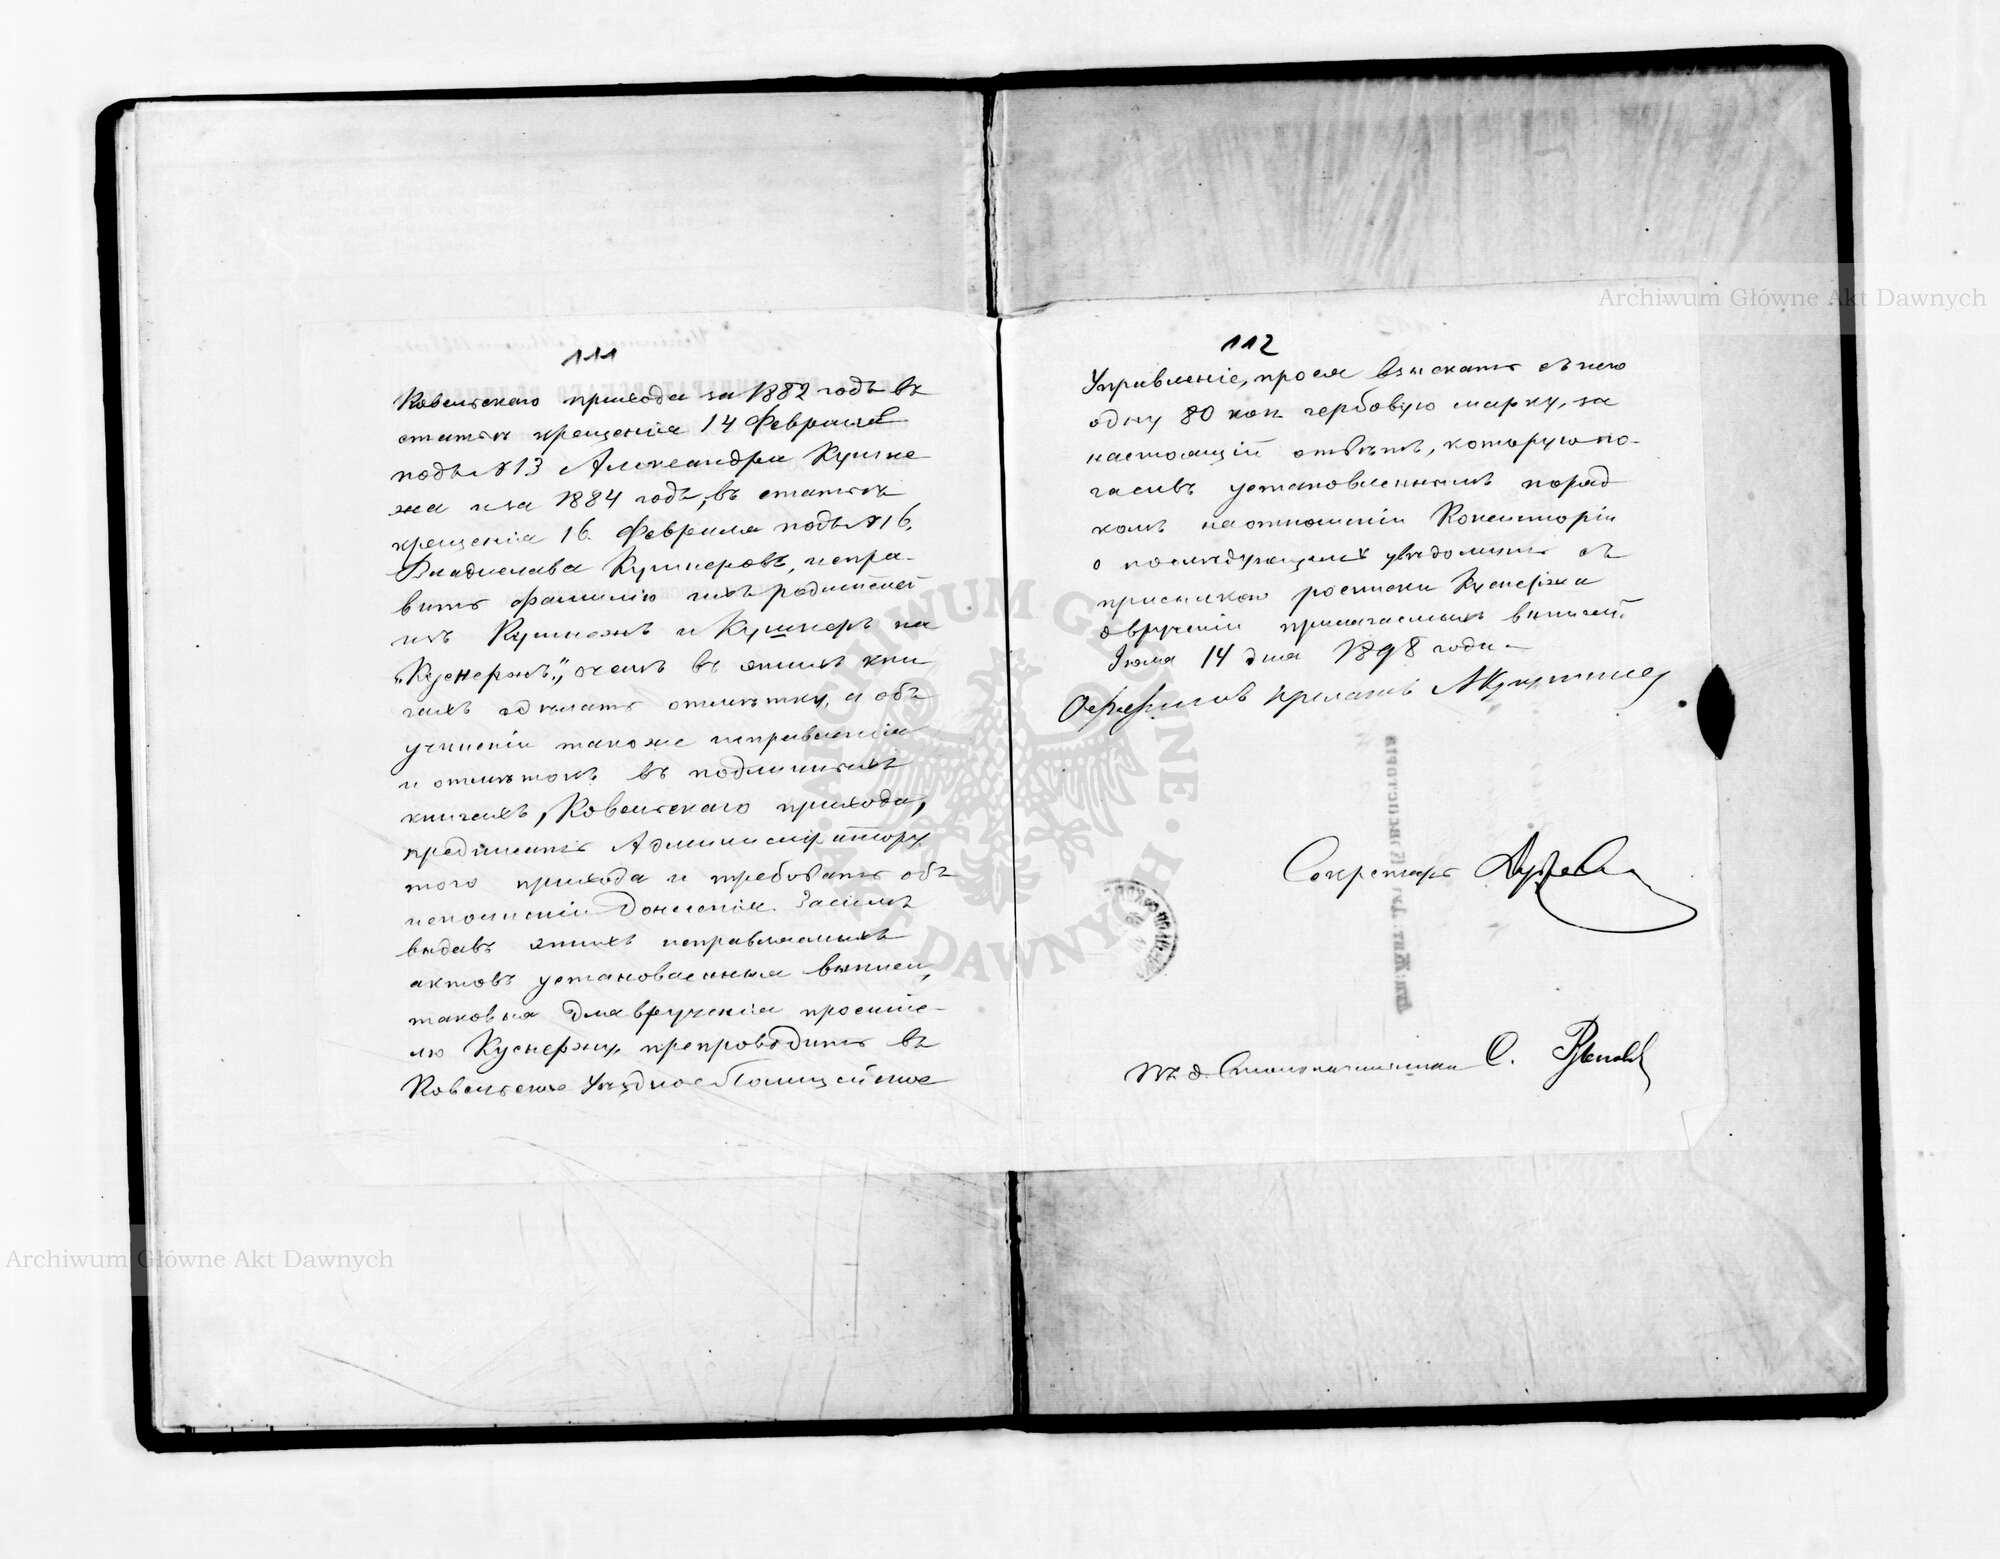 111
Ковельскаго прихода за 1882 годъ въ
статьѣ крещенія 14 Февраля
подъ №13 Александра Кушне
жа и за 1884 годъ, въ статьѣ
крещенія 16. Февраля подъ №16,
Владислава Кушнеровъ, испра-
вить фамилію ихъ родителей
изъ Кушнежъ и Кушнеръ на
"Куснержъ", о чемъ въ этихъ кни
гахъ сдѣлать отмѣтку, а объ
учиненіи такоже исправленія
и отмѣтокъ въ подлинныхъ
книгахъ, Ковельскаго прихода,
предписать Администратору
того прихода и требовать объ
исполненіи донесенія. Засимъ
выдавъ этихъ исправляемыхъ
актовъ установленныя выписи,
таковыя для врученія просите-
лю Куснержу, препроводить въ
Ковельское Уѣздное Полицейское
112
Управленіе, прося взыскать съ него
одну 80 коп гербовую марку, за
настоящій отвѣтъ, которую по-
гасивъ установленнымъ поряд
комъ на отношеніи Консисторіи
о послѣдующемъ увѣдомить съ
присылкою росписки Куснержа
о врученіи прилагаемыхъ выписей.
Іюля 14 дня 1898 года.
Оффиціалъ Прелатъ
Секретарь
И. д. Столоначальника С.
Archiwum Główne Akt Dawnych
Archiwum Główne Akt Dawnych
ARCHIWUM GŁÓWNE · AKT DAWNYCH ·